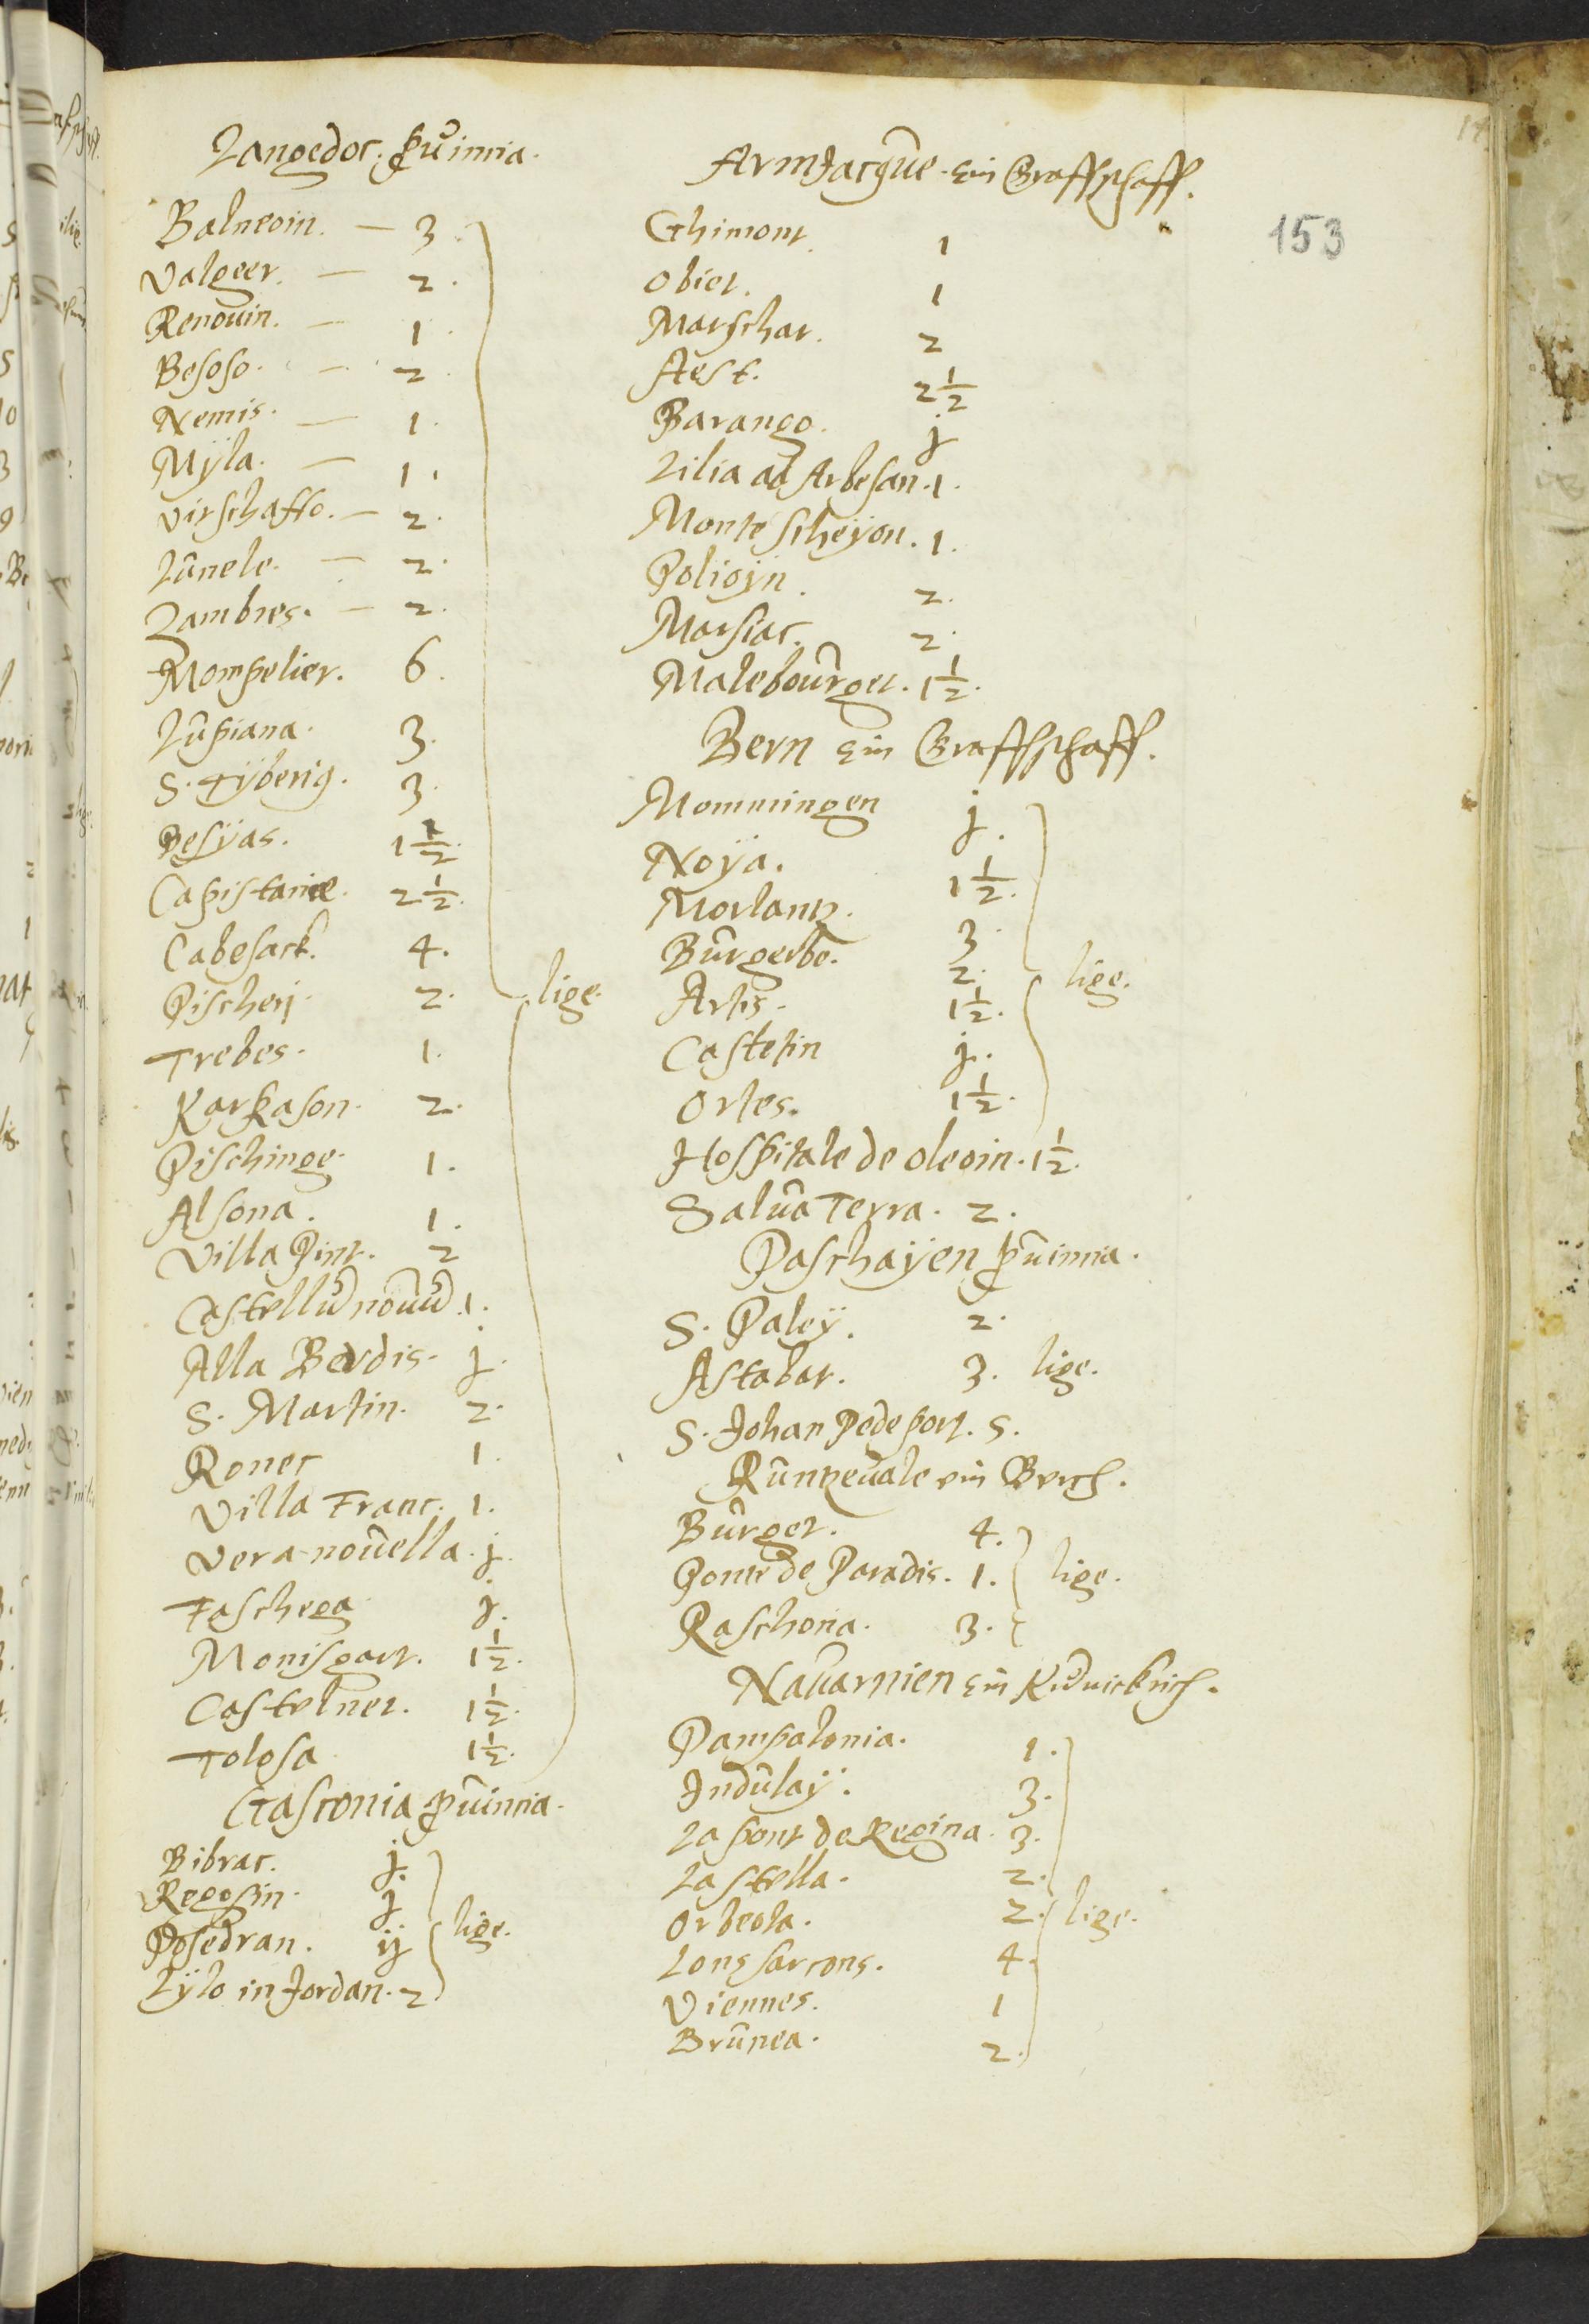 Langedoc: puincia.
Balneoin. — 3.
Valgeer. — 2.
Renouin. — 1.
Besoso. — 2.
Nemis. — 1.
Mÿla. — 1.
Virschaffo. — 2.
Lunele. — 2.
Lambres. — 2.
Mompelier. 6.
Lupiana. 3.
S. Tÿberig. 3.
Besÿas. 1 1/2.
Capistanie. 2 1/2.
Cabesack. 4.
Pischerj. 2.
lige.
Trebes. 1.
Karkason. 2.
Pischinge. 1.
Alsona. 1.
Villa Pint. 2
Castellu nouu 1.
Alla Berdis. j.
S. Martin. 2.
Ronec 1.
Villa Franc. 1.
Vera nouella. j.
Faschega j.
Monisgart. 1 1/2.
Castelnet. 1 1/2.
Tolosa 1 1/2.
Gasconia puincia.
Bibrac. j.
Regosin. j
Posedran. ij
lige.
Lÿlo in Jordan. 2
Armjacque. ein Graffschafft.
Ghimont. 1
Obiet. 1
Marschar. 2
Aest. 2 1/2
Barango. j
Lilia ad Arbesan. 1.
Monte scheÿon. 1.
Poligÿn. 2.
Marsiac. 2.
Malebourget. 1 1/2.
Bern ein Graffschafft.
Mommingen j.
Noÿa. 1 1/2.
Morlantz. 3.
Burgerbe. 2.
lige.
Artis. 1 1/2.
Castetin j.
Ortes. 1 1/2.
Hospitale de oleoin. 1 1/2.
Salua Terra. 2.
Paschaÿen puincia.
S. Paleÿ. 2.
Astabat. 3. lige.
S. Johan Pedeport. 5.
Runtzeuale ein Berch.
Burget. 4.
Ponte de Paradis. 1. lige.
Raschona. 3.
Nauarnien ein
Pampalonia. 1.
Indulaÿ. 3.
La pont de Regina. 3.
La stella. 2.
Orbeola. 2. lige.
Long sarcons. 4.
Viennes. 1
Brunea. 2.
153